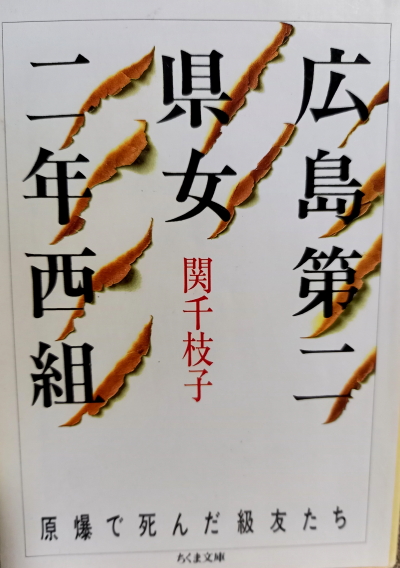 広島第二
県女
二年西組
関千枝子
原爆で死んだ級友たち
ちくま文庫